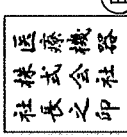 医療機器
株式会社
社長之印